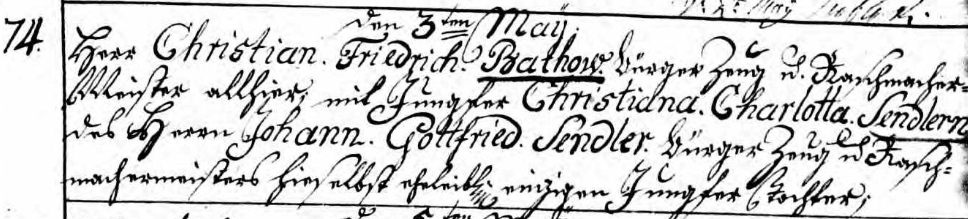 74.
den 3ten May,
Herr Christian. Friedrich. Bathow. Bürger Zeug u. Raschmacher-
Meister allhier, mit Jungfer Christiana. Charlotta. Sendlern
des Herrn Johann. Gottfried. Sendler. Bürger Zeug u. Rasch-
machermeisters hieselbst eheleibl. einzigen Jungfer Tochter,